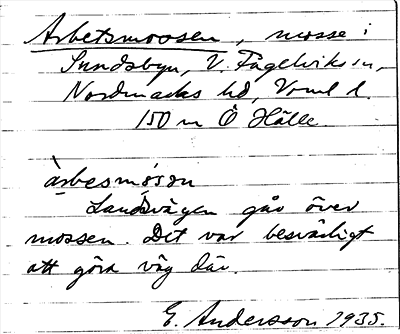 Arbetsmossen, mosse i
Sundsbyn, V. Fågelviks sn,
Nordmarks hd, Värml. l.
150 m Ö Hälle
àrbesmósən
Landsvägen går över
mossen. Det var besvärligt
att göra väg där.
E. Andersson 1935.